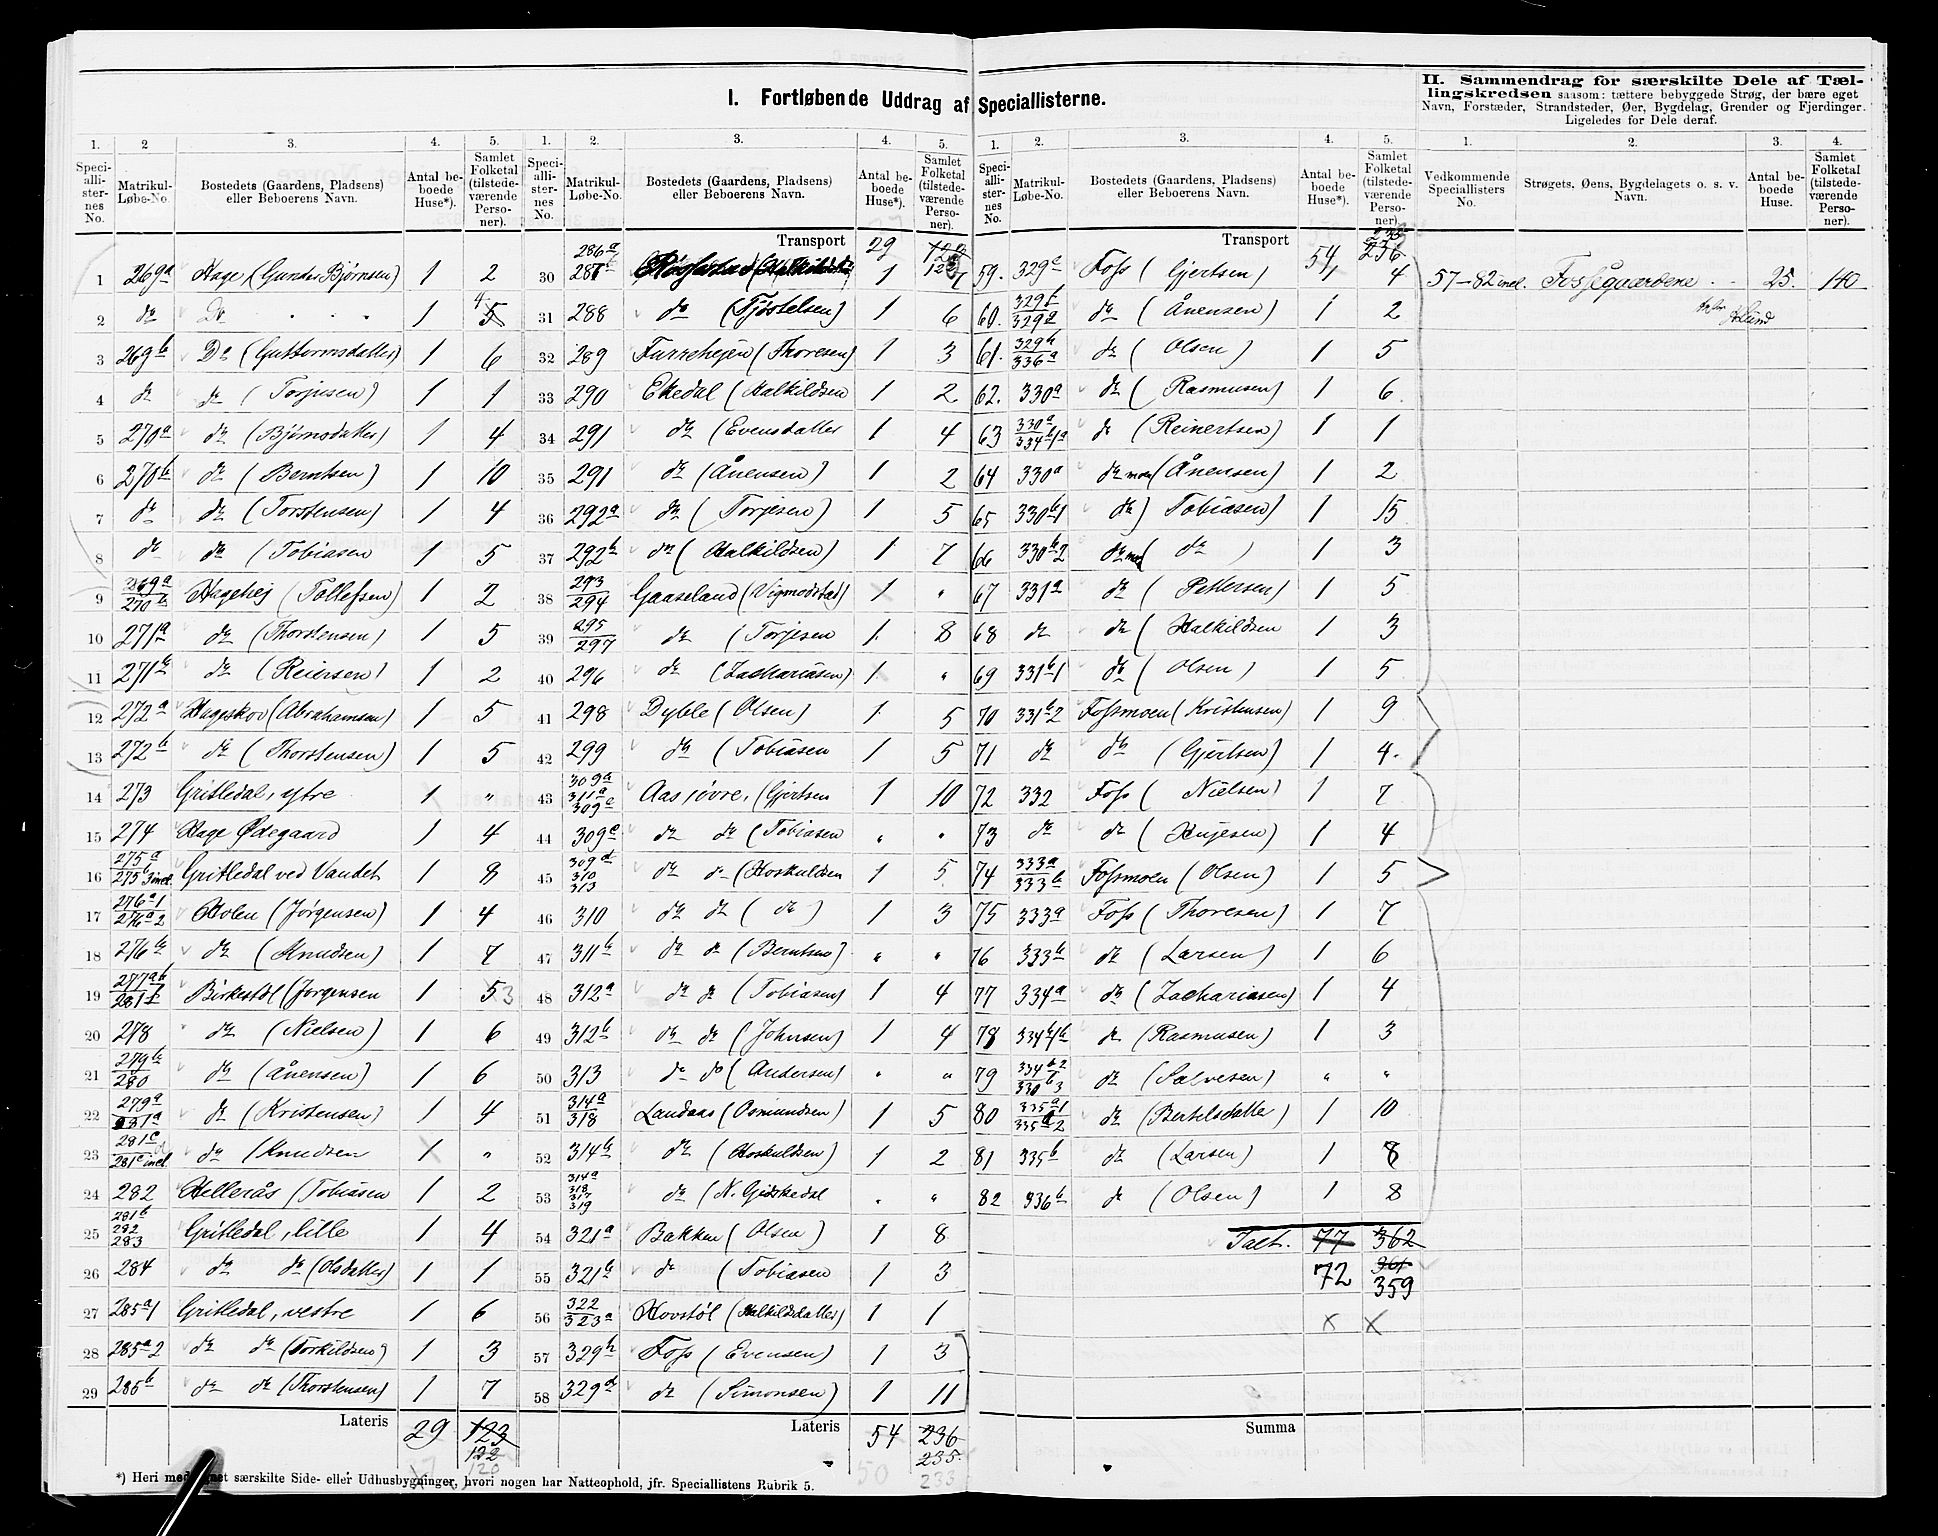 I. Fortløbende Uddrag af Speciallisterne.
II. Sammendrag for særskilte Dele af Tæl-
lingskredsen saasom: tættere bebyggede Strøg, der bære eget
Navn, Forstæder, Strandsteder, Øer, Bygdelag, Grender og Fjerdinger.
Ligeledes for Dele deraf.
1. 2 3. 4. 5.
Speci-alli-ster-nes No. Matrikul-Løbe-No. Bostedets (Gaardens, Pladsens) eller Beboerens Navn. Antal be-boede Huse*). Samlet Folketal (tilstede-værende Perso-ner).
1 269a Hage (Gunder Bjørnsen) 1 2
2 do Do 1 4 5
3 269b Do (Guttormsdatter) 1 6
4 do do (Torjusen) 1 1
5 270a do (Bjørnsdatter) 1 4
6 270b do (Berntsen) 1 10
7 do do (Torstensen) 1 4
8 do do (Tobiasen 1 5
9 269a 270b Hagehej (Tollefsen) 1 2
10 271a do (Thorstensen) 1 5
11 271b do (Reiersen) 1 2
12 272a Hageskov (Abrahamsen) 1 5
13 272b do (Thorstensen) 1 5
14 273 Gritledal, ytre 1 "
15 274 Hage Ødegaard 1 4
16 275a 275b3 incl. Gritledal ved Vandet 1 8
17 276a1 276a2 Holen (Jørgensen) 1 4
18 276b do (Knudsen) 1 7
19 Birkestøl (Jørgensen 1 5 3
20 278 do (Nielsen) 1 6
21 279b 280 do (Ånensen) 1 6
22 279a 281a do (Kristensen) 1 4
23 281c incl. do (Knudsen 1 "
24 282 Hellerås (Tobiasen 1 2
25 281b 282 283 Gritledal, lille 1 4
26 284 do do (Olsdatter) 1 1
27 285a1 Gritledal, vestre 1 6
28 285a2 do do (Torkildsen) 1 3
29 285b do do (Thorstensen) 1 7
Lateris 29 123 122 120
1. 2. 3. 4. 5.
Speci-alli-ster-nes No. Matrikul-Løbe-No. Bostedets (Gaardens, Pladsens) eller Beboerens Navn. Antal be-boede Huse*). Samlet Folketal (tilstede-værende Perso-ner).
Transport 29
30 286a 1 7
31 288 do (Tjøstelsen) 1 6
32 289 Furrehejen (Thoresen) 1 3
33 290 Ekedal (Halkildsen 1 2
34 291 do (Evensdatter 1 4
35 291 do (Ånensen) 1 2
36 292a do (Torjesen) 1 5
37 292b do (Halkildsen) 1 7
38 293 294 Gaaseland (Vigmodstad) 1 "
39 295 297 do (Torjesen 1 8
40 296 do (Zachariasen) 1 "
41 298 Dyble (Olsen) 1 5
42 299 do (Tobiasen 1 5
43 309a 311a Aas øvre, (Gjertsen 1 10
44 309c do do (Tobiasen " "
45 309d 310 313 do do (Hoskuldsen 1 5
46 310 do do (do) 1 3
47 311b do do (Berntsen) " "
48 312a do do (Tobiasen) 1 4
49 312b do do (Johnsen) 1 4
50 313 do do (Andersen) " "
51 314a 318 Landaas (Osmundsen) 1 5
52 314b do (Hoskuldsen) 1 2
53 314a 318 317 319 do (N. Gidskedal " "
54 321a Bakken (Olsen) 1 8
55 321b do (Tobiasen 1 3
56 322 323a Hovstøl (Halkildsdatter) 1 1
57 329b Foss (Evensen) 1 3
58 329d do (Simonsen) 1 11
Lateris 54 236 235. 50 233
1. 2. 3. 4. 5.
Speci-alli-ster-nes No. Matrikul-Løbe-No. Bostedets (Gaardens, Pladsens) eller Beboerens Navn. Antal be-boede Huse*). Samlet Folketal (tilstede-værende Perso-ner).
Transport 54 235 236
59. 329c Foss (Gjertsen) 1 4
60. 329f 329a do (Ånensen) 1 2
61. 329b 336a do (Olsen) 1 5
62. 330a do (Rasmusen) 1 6
63 330a 334b1a do (Reinertsen) 1 1
64 330a do moen (Ånensen) 1 2
65 330b1 do) Tobiasen) 1 15
66 330b2 do moen (do) 1 3
67 331a do (Pettersen) 1 5
68 do do (Halkildsen 1 3
69 331b1 do (Olsen) 1 5
70 331b2 Fossmoen (Kristensen) 1 9
71 do do (Gjertsen) 1 4.
72 332 Foss (Nielsen) 1 7
73 do do (Hujesen) 1 4
74 333a 333b Fossmoen (Olsen) 1 5
75 333a Foss (Thoresen) 1 7
76 333b do (Larsen) 1 6
77 334a do (Zachariasen) 1 4
78 334b1b do (Rasmusen) 1 3
79 334b2 330b3 do (Salvesen) " "
80 335a1 335a2 do (Bertelsdatter) 1 10
81 335b do (Larsen) 1 8
82 336b do (Olsen) 1 8
Talt. 77 362
72 361 359
x x
Summa
1. 2. 3. 4.
Vedkommende Speciallisters No. Strøgets, Øens, Bygdelagets o. s. v. Navn. Antal be-boede Huse. Samlet Folketal (tilstede-værende Perso-ner).
57–82 incl. Fossgaardene 25. 140
*) Heri medregnet særskilte Side- eller Udhusbygninger, hvori nogen har Natteophold, jfr. Speciallistens Rubrik 5.